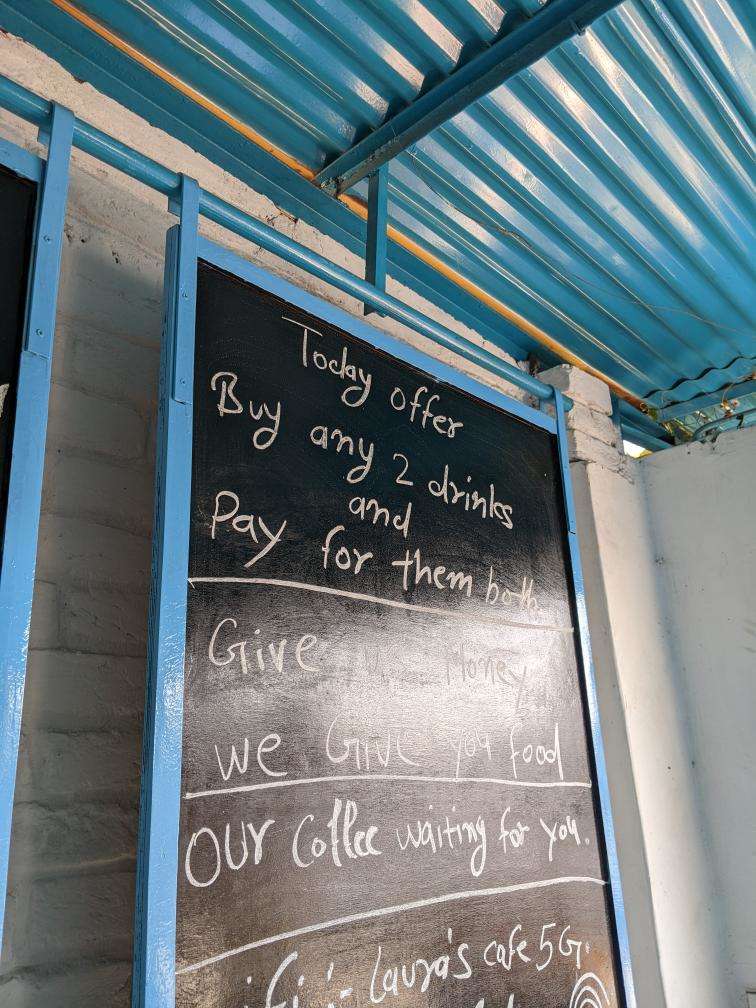 Today offer
Buy any 2 drinks
and
Pay for them both
Give Money
we Give you food
OUR Coffee waiting for you.
Fi :- Laura's cafe 5G.